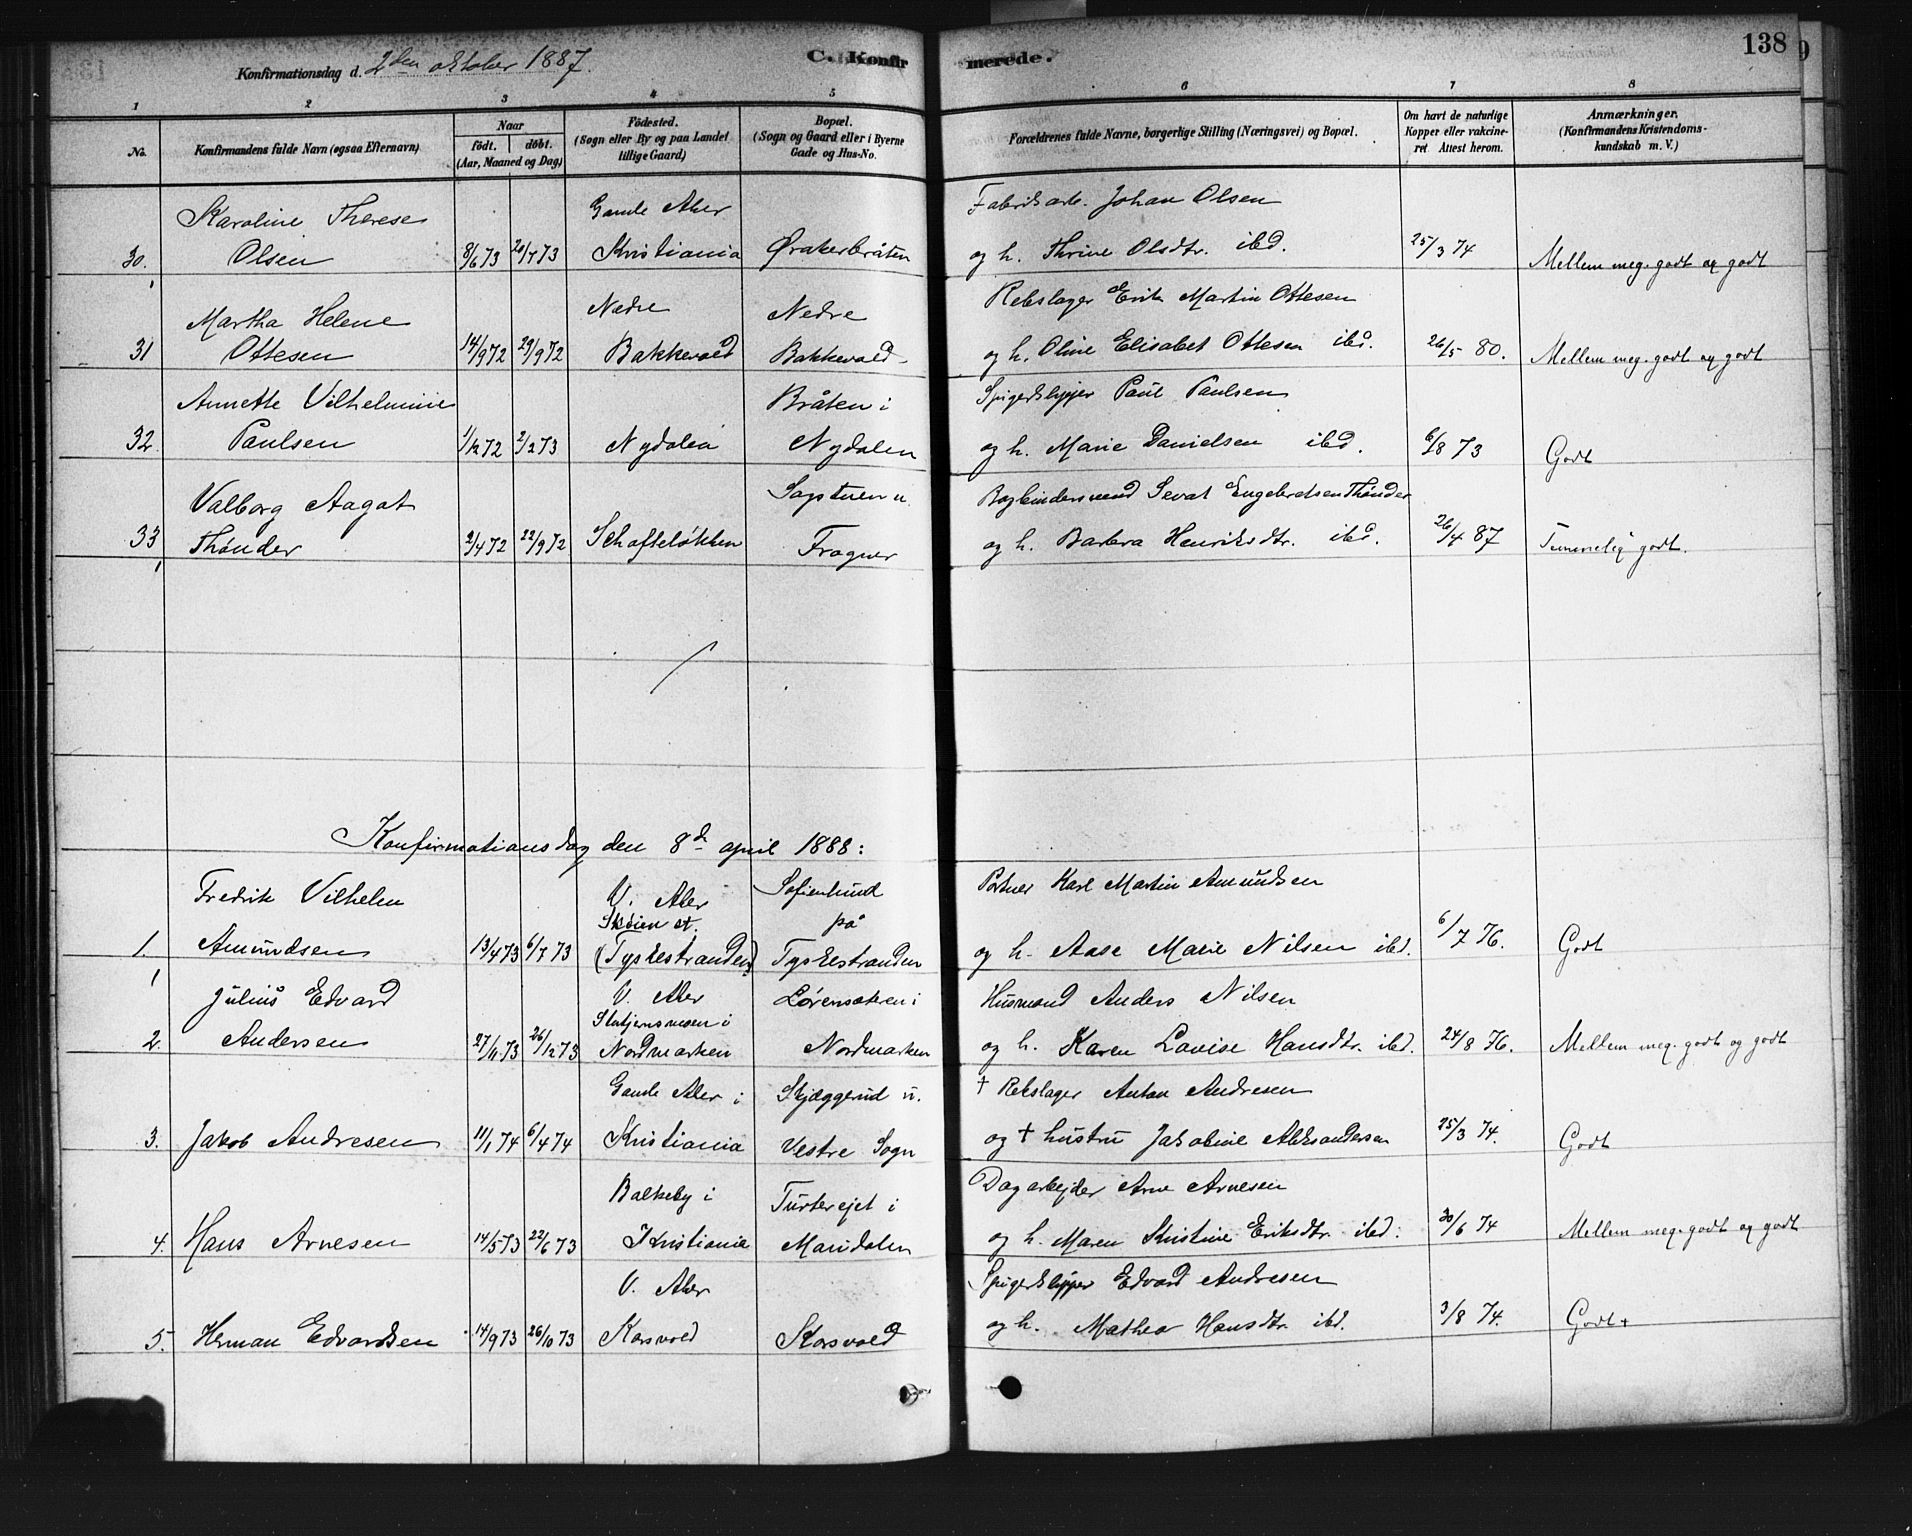 138
Konfirmationsdag d. 2den oktober 1887.
C. Konfirmerede.
1 2 3 4 5 6 7 8
No. Konfirmandens fulde Navn (ogsaa Efternavn) Naar født. døbt. (Aar, Maaned og Dag) Fødested. (Sogn eller By og paa Landet tillige Gaard) Bopæl. (Sogn og Gaard eller i Byerne Gade og Hus-No. Forældrenes fulde Navne, borgerlige Stilling (Næringsvei) og Bopæl. Om havt de naturlige Kopper eller vakcineret Attest herom. Anmærkninger. (Konfirmandens Kristendomskundskab m. V.)
Karoline Therese Gamle Aker Fabrikarb. Johan Olsen
30. Olsen 8/6 73 20/7 73 Kristiania Ørakerbråten og h. Thrine Olsdtr. ibd. 25/3 74 Mellem meg. godt og godt
Martha Helene Nedre Nedre Rebslager Erik Martin Ottesen
31 Ottesen 14/9 72 29/9 72 Bakkevold Bakkevold og h. Oline Elisabet Ottesen ibd. 26/5 80. Mellem meg. godt og godt
Annette Vilhelmine Bråten i Spigerklipper Paul Paulsen
32. Paulsen 1/12 72 2/2 73 Nydalen Nydalen og h. Marie Danielsen ibd. 6/8 73 Godt
Valborg Aagot Sagstuen u. Bogbindersvend Sevat Engebretsen Thønder
33 Thønder 2/4 72 22/9 72 Schafteløkken Frogner og h. Barbra Henriksdtr. ibd. 26/4 87 Temmelig godt.
Konfirmationsdag den 8d april 1888:
Fredrik Vilhelm V. Aker Sofienlund Portner Karl Martin Amundsen
Skøien st. på
1. Amundsen 13/4 73 6/7 73 (Tyskestranden) Tyskestranden og h. Aase Marie Nilsen ibd. 6/7 76. Godt
Julius Edvard V. Aker Lørensæteren i Husmand Anders Nilsen
Slatjernsmosen i
2. Andersen 27/11 73 26/12 73 Nordmarken Nordmarken og h. Karen Lovise Hansdtr. ibd. 24/8 76. Mellem meg. godt og godt
Gamle Aker i Skjæggerud u. † Rebslager Anton Andresen
3. Jakob Andresen 11/1 74 6/4 74 Kristiania Vestre Sogn og † hustru Jakobine Aleksandersen 25/3 74. Godt
Balkeby i Turterejet i Dagarbejder Arne Arnesen
4. Hans Arnesen 14/5 73 22/6 73 Kristiania Maridalen og h. Maren Kristine Eriksdtr. ibd. 30/6 74 Mellem meg. godt og godt
V. Aker Spigerklipper Edvard Andresen
5. Herman Edvardsen 14/9 73 26/10 73 Korsvold Korsvold og h. Mathea Hansdtr. ibd. 3/8 74. Godt+